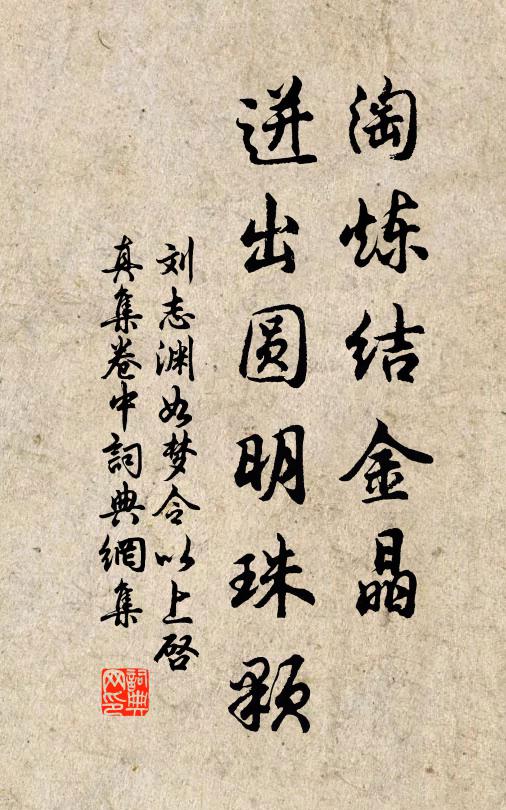 淘炼结金晶
迸出圆明珠颗
刘志渊如梦令以上启
真集卷中詞典網集
詞典
网印